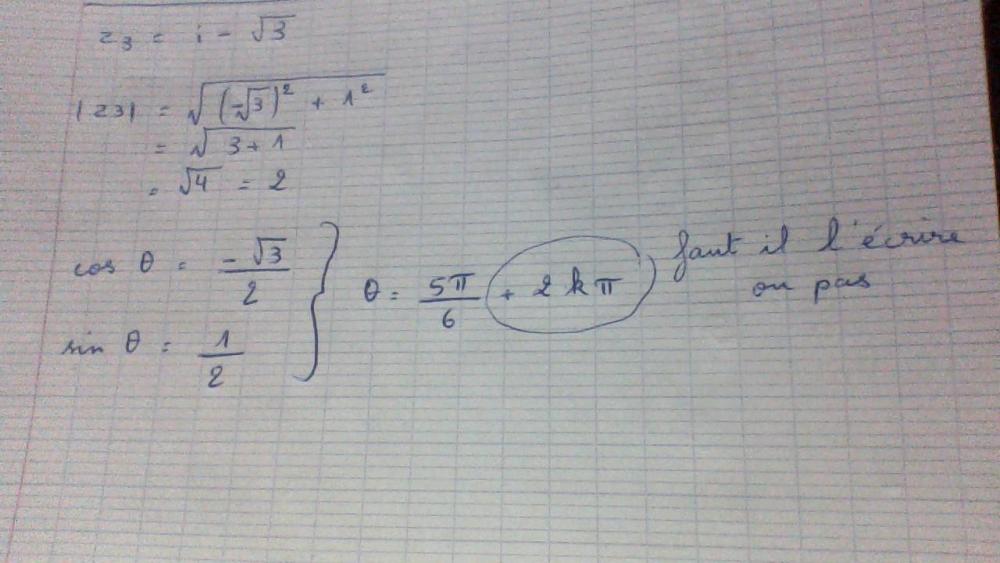 z3 = i - √3
|z3| = √((-√3)² + 1²)
= √(3+1)
= √4 = 2
cos θ = -√3/2
sin θ = 1/2
} θ = 5π/6 + 2kπ
faut il l'écrire
ou pas